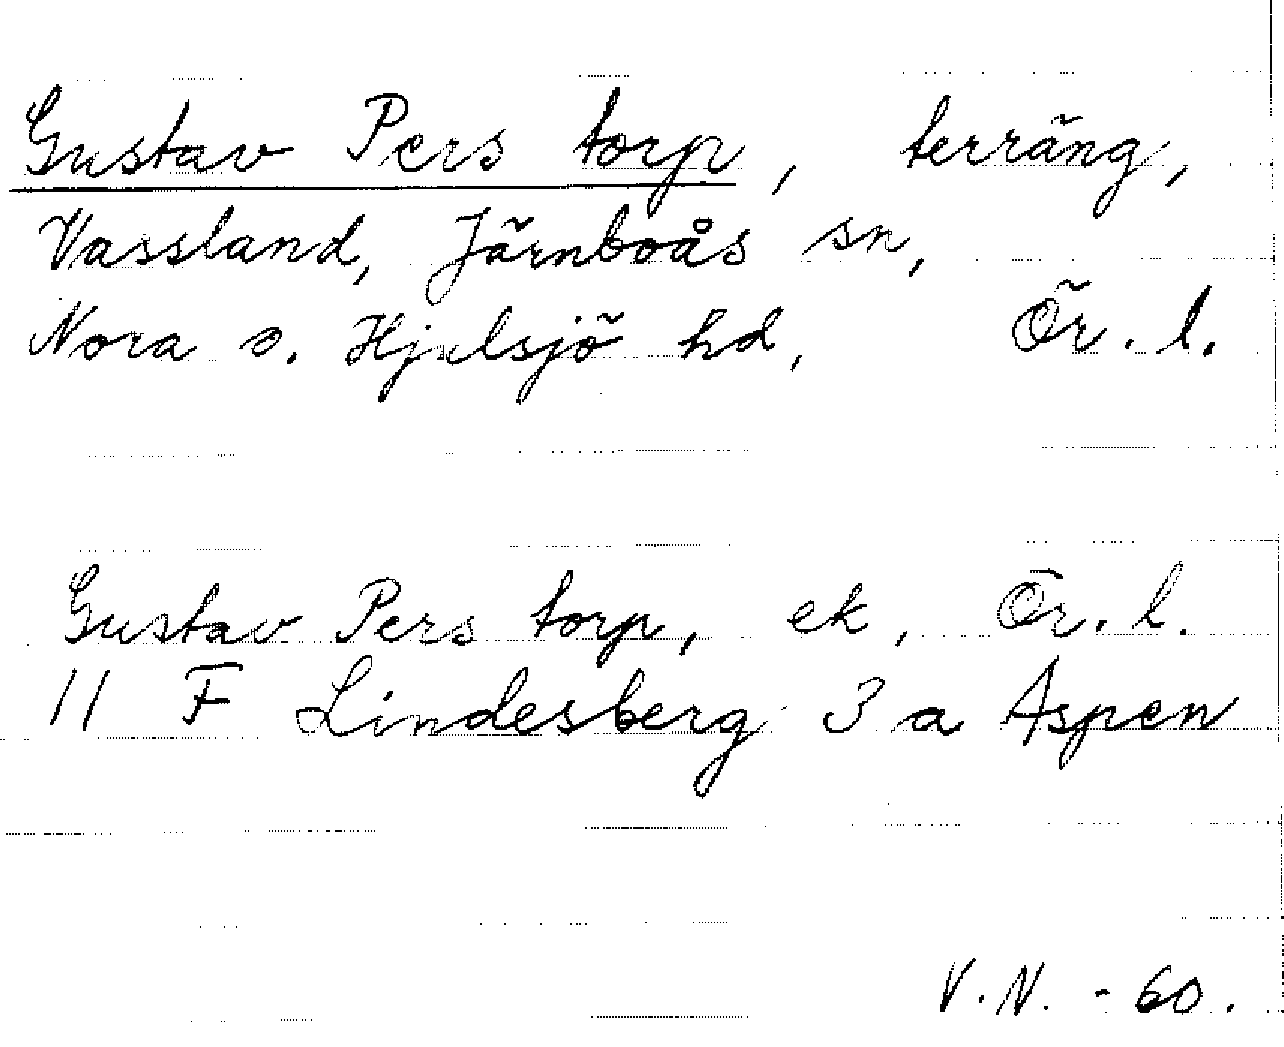 Gustav Pers torp, terräng,
Vassland, Järnboås sn,
Nora o. Hjulsjö hd, Ör. l.
Gustav Pers torp, ek, Ör. l.
11 F Lindesberg 3 a Aspen
V.N. - 60.